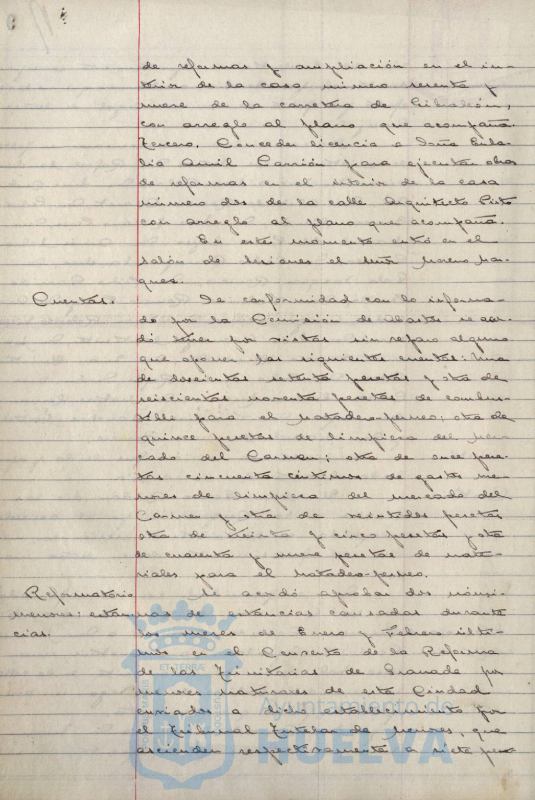 de reformas y ampliación en el in-
terior de la casa número sesenta y
nueve de la carretera de Gibraleón,
con arreglo al plano que acompaña.
Tercero. Conceder licencia a Doña Eula-
lia Amil Carrión para ejecutar obras
de reformas en el interior de la casa
número dos de la calle Arquitecto Pinto
con arreglo al plano que acompaña.
En este momento entró en el
salón de sesiones el Señor Moreno Mar-
quez.
Cuentas. De conformidad con lo informa-
do por la Comisión de Abastos se acor-
dó tener por vistas sin reparo alguno
que oponer las siguientes cuentas: Una
de doscientas setenta pesetas y otra de
seiscientas noventa pesetas de combus-
tible para el matadero-perneo; otra de
quince pesetas de limpieza del mer-
cado del Carmen; otra de once pese-
tas cincuenta céntimos de gastos me-
nores de limpieza del mercado del
Carmen y otra de veintidos pesetas
otra de treinta y cinco pesetas y otra
de cuarenta y nueve pesetas de mate-
riales para el matadero-perneo.
Reformatorio Se acordó aprobar dos nómi-
menores: estan- nas de estancias causadas durante
cias. los meses de Enero y Febrero últi-
mos en el Convento de la Reforma
de las Trinitarias de Granada por
menores naturales de esta Ciudad
enviados a dicho establecimiento por
el Tribunal Tutelar de Menores, que
ascienden respectivamente a siete pese-
Ayuntamiento de
HUELVA